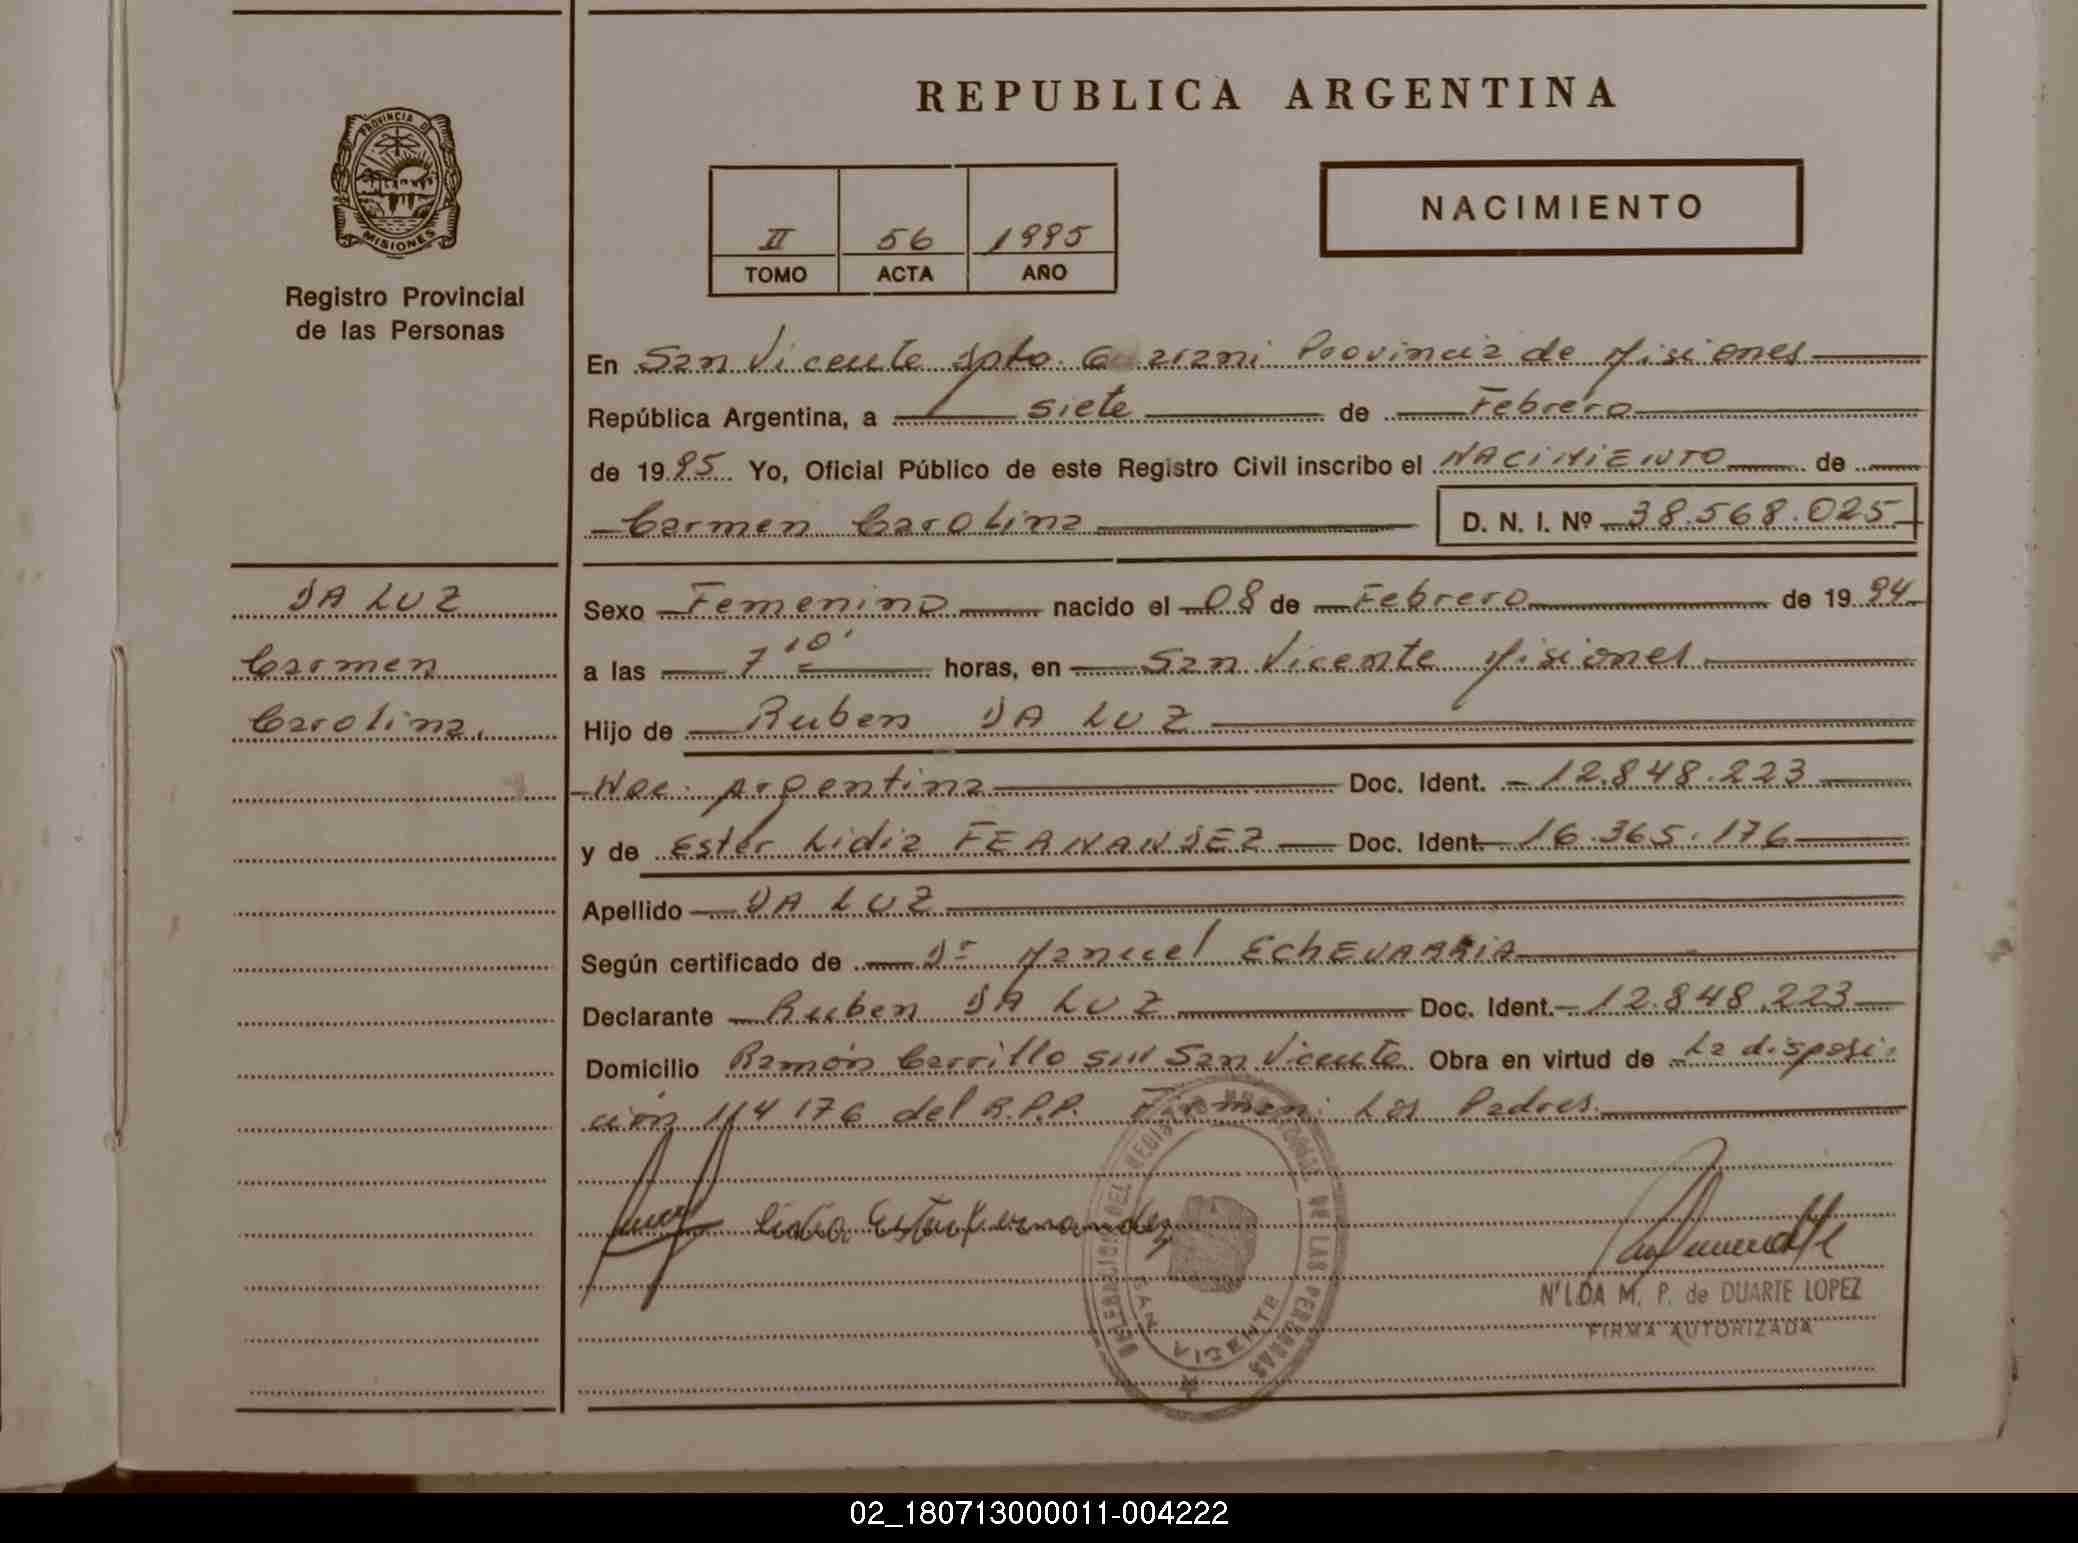 REPUBLICA ARGENTINA
PROVINCIA DE
MISIONES
Registro Provincial
de las Personas
II 56 1995
TOMO ACTA AÑO
NACIMIENTO
En San Vicente Dpto. Guarani Provincia de Misiones
República Argentina, a siete de Febrero
de 1995 Yo, Oficial Público de este Registro Civil inscribo el NACIMIENTO de
Carmen Carolina D. N. I. Nº 38.568.025
DA LUZ
Carmen
Carolina.
Sexo Femenino nacido el 08 de Febrero de 1994
a las 7 10' horas, en San Vicente Misiones
Hijo de Ruben DA LUZ
Nac. Argentina Doc. Ident. 12.848.223
y de Ester Lidia FERNANDEZ Doc. Ident. 16.365.176
Apellido DA LUZ
Según certificado de Dr Manuel EchEVARRIA
Declarante Ruben DA LUZ Doc. Ident. 12.848.223
Domicilio Ramón Carrillo s/n San Vicente. Obra en virtud de La disposi-
ción 114/76 del R.P.P. Firman: Los Padres.
Lidia Ester Fernandez
DELEGACION DEL REGISTRO PROVINCIAL DE LAS PERSONAS
SAN VICENTE
NILDA M. P. de DUARTE LOPEZ
FIRMA AUTORIZADA
02_180713000011-004222